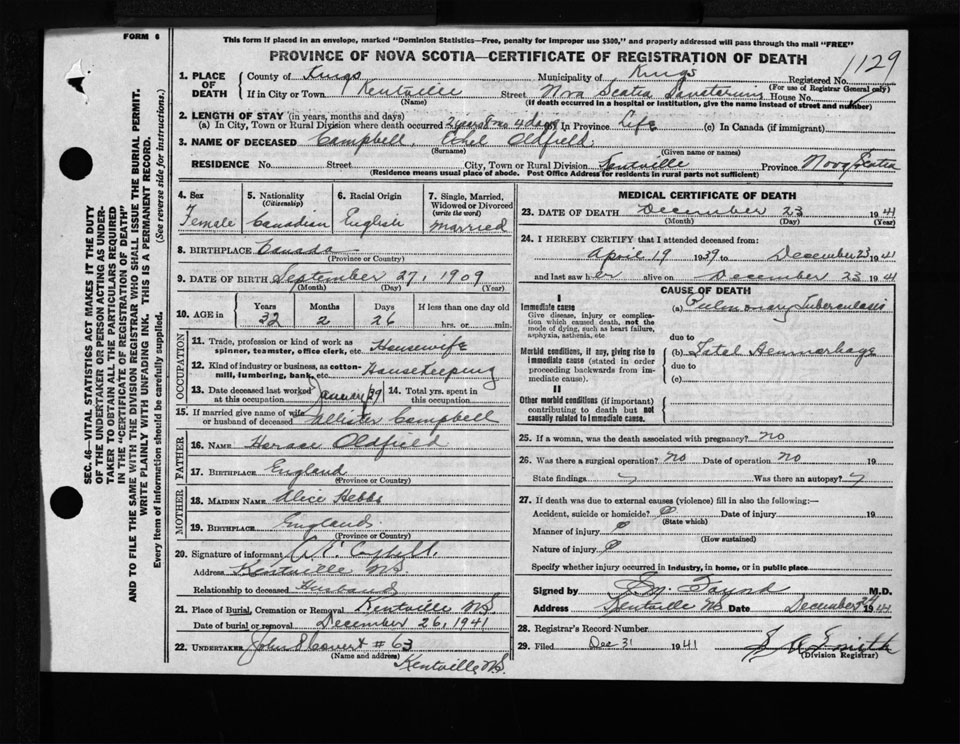 FORM 6
This form if placed in an envelope, marked "Dominion Statistics—Free, penalty for improper use $300," and properly addressed will pass through the mail "FREE"
PROVINCE OF NOVA SCOTIA—CERTIFICATE OF REGISTRATION OF DEATH
1129
1. PLACE OF DEATH County of Kings Municipality of Kings Registered No. (For use of Registrar General only)
If in City or Town Kentville (Name) Street Nova Scotia Sanatorium House No.
(If death occurred in a hospital or institution, give the name instead of street and number)
2. LENGTH OF STAY (in years, months and days)
(a) In City, Town or Rural Division where death occurred 2 years 8 mo 4 days (b) In Province Life (c) In Canada (if immigrant)
3. NAME OF DECEASED Campbell, Ethel Oldfield.
(Surname) (Given name or names)
RESIDENCE No. Street City, Town or Rural Division Kentville Province Nova Scotia
(Residence means usual place of abode. Post Office Address for residents in rural parts not sufficient)
4. Sex Female
5. Nationality (Citizenship) Canadian
6. Racial Origin English
7. Single, Married, Widowed or Divorced (write the word) Married
8. BIRTHPLACE Canada
(Province or Country)
9. DATE OF BIRTH September 27, 1909
(Month) (Day) (Year)
10. AGE in Years 32 Months 2 Days 26 If less than one day old hrs. or min.
OCCUPATION
11. Trade, profession or kind of work as spinner, teamster, office clerk, etc. Housewife
12. Kind of industry or business, as cotton-mill, lumbering, bank, etc. Housekeeping
13. Date deceased last worked at this occupation January 39 14. Total yrs. spent in this occupation
15. If married give name of wife or husband of deceased Allister Campbell
FATHER
16. NAME Horace Oldfield
17. BIRTHPLACE England
(Province or Country)
MOTHER
18. MAIDEN NAME Alice Hebbs
19. BIRTHPLACE England
(Province or Country)
20. Signature of informant
Address Kentville N.S.
Relationship to deceased Husband
21. Place of Burial, Cremation or Removal Kentville N.S.
Date of burial or removal December 26, 1941
22. UNDERTAKER # 63
(Name and address)
Kentville N.S.
MEDICAL CERTIFICATE OF DEATH
23. DATE OF DEATH December 23 1941
(Month) (Day) (Year)
24. I HEREBY CERTIFY that I attended deceased from:
April 19 1939 to December 23 1941
and last saw her alive on December 23 1941
CAUSE OF DEATH
I
Immediate cause
Give disease, injury or complication which caused death, not the mode of dying, such as heart failure, asphyxia, asthenia, etc.
(a) Pulmonary Tuberculosis
due to
Morbid conditions, if any, giving rise to immediate cause (stated in order proceeding backwards from immediate cause).
(b) Fatal Hemorrhage
due to
(c)
II
Other morbid conditions (if important) contributing to death but not causally related to immediate cause.
25. If a woman, was the death associated with pregnancy? No
26. Was there a surgical operation? No Date of operation No 19
State findings Was there an autopsy?
27. If death was due to external causes (violence) fill in also the following:—
Accident, suicide or homicide? Date of injury 19
(State which)
Manner of injury
(How sustained)
Nature of injury
Specify whether injury occurred in industry, in home, or in public place
Signed by M.D.
Address Kentville N.S. Date December 1941
28. Registrar's Record Number
29. Filed Dec 31 1941 Smith
(Division Registrar)
SEC. 46—VITAL STATISTICS ACT MAKES IT THE DUTY
OF THE UNDERTAKER OR PERSON ACTING AS UNDER-
TAKER TO OBTAIN ALL THE PARTICULARS REQUIRED
IN THE "CERTIFICATE OF REGISTRATION OF DEATH"
AND TO FILE THE SAME WITH THE DIVISION REGISTRAR WHO SHALL ISSUE THE BURIAL PERMIT.
WRITE PLAINLY WITH UNFADING INK. THIS IS A PERMANENT RECORD.
Every item of information should be carefully supplied. (See reverse side for instructions.)